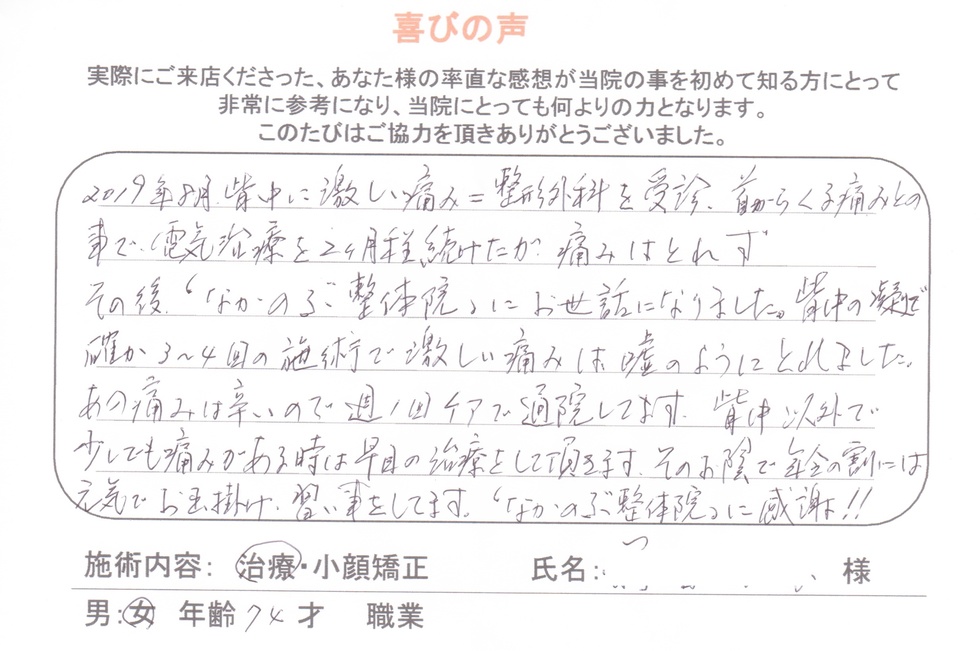 喜びの声
実際にご来店くださった、あなた様の率直な感想が当院の事を初めて知る方にとって
非常に参考になり、当院にとっても何よりの力となります。
このたびはご協力を頂きありがとうございました。
2019年8月 背中に激しい痛み=整形外科を受診、首からくる痛みとの
事で、電気治療を2ヶ月程続けたが 痛みはとれず
その後 "なかのぶ整体院"にお世話になりました。背中の凝りで
確か3~4回の施術で激しい痛みは嘘のようにとれました。
あの痛みは辛いので週1回ケアで通院してます。背中以外で
少しでも痛みがある時は早目の治療をして頂きます。そのお陰で年令の割には
元気でお出掛け、習い事をしてます。"なかのぶ整体院"に感謝!!
施術内容: 治療・小顔矯正 氏名: 様
男:女 年齢 74 才 職業